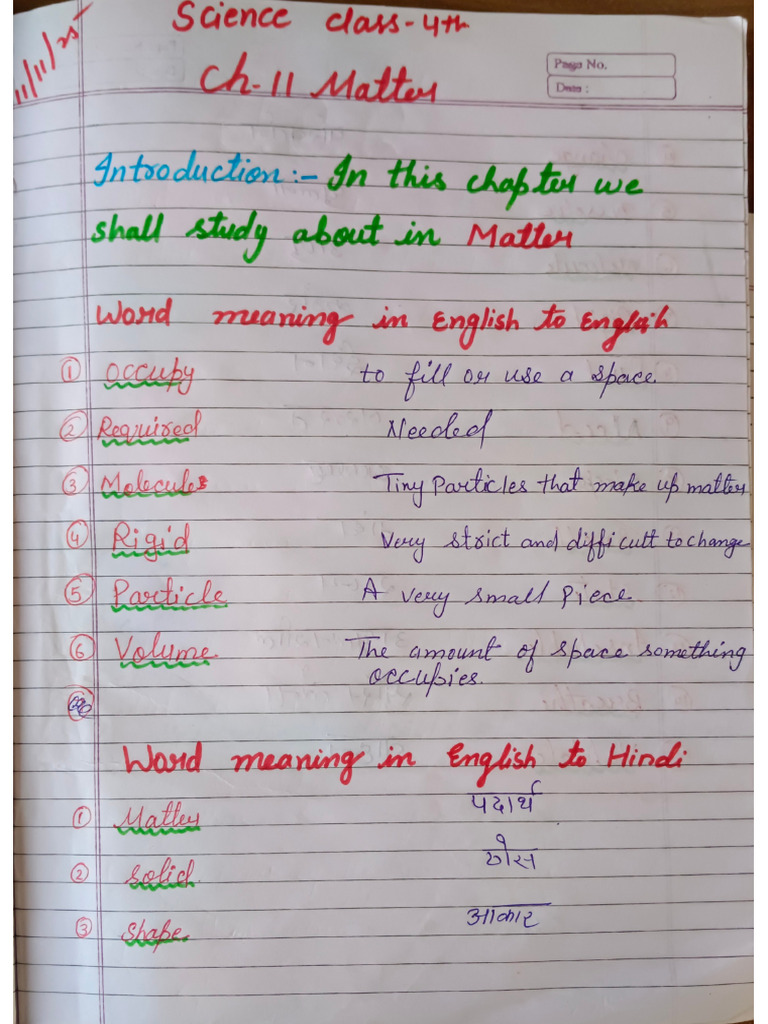 11/11/25
Science class-4th
Page No.
Date :
Ch-11 Matter
Introduction :- In this chapter we
shall study about in Matter
Word meaning in English to English
① Occupy to fill or use a space.
② Required Needed
③ Molecules Tiny Particles that make up matter
④ Rigid Very strict and difficult to change
⑤ Particle A very small piece
⑥ Volume. The amount of space something
occupies.
Word meaning in English to Hindi
① Matter पदार्थ
② Solid ठोस
③ Shape. आकार